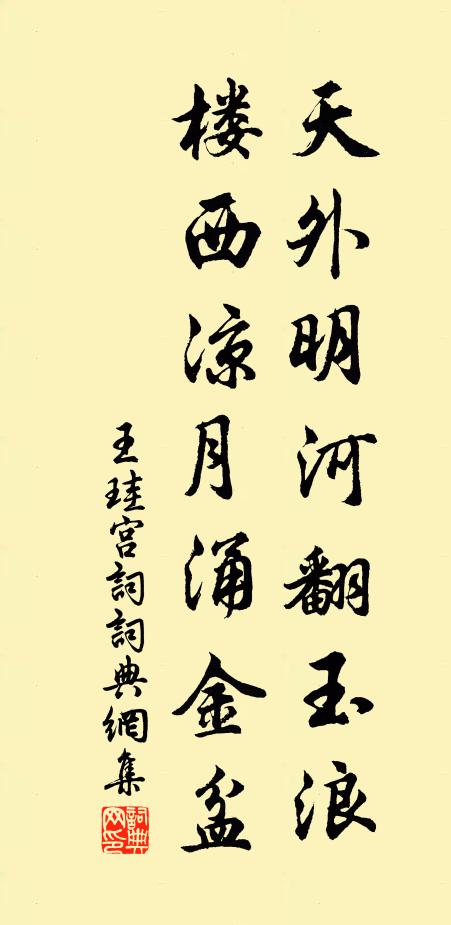 天外明河翻玉浪
楼西凉月涌金盆
王珪宫詞詞典網集
詞典
网印